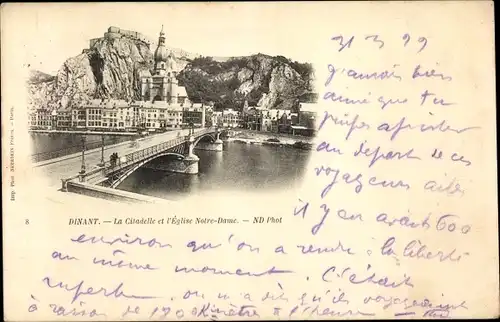 31 3 99
j'aurais bien
aimé que tu
puisses assister
au départ de ces
voyageurs ailés
il y en avait 600
environ qu'on a rendre la liberté
au même moment C'était
superbe on m'a dit qu'ils voyageaient
à raison de l'heure
Imp. Phot. NEURDEIN Frères. — Paris.
8 DINANT. — La Citadelle et l'Église Notre-Dame. — ND Phot